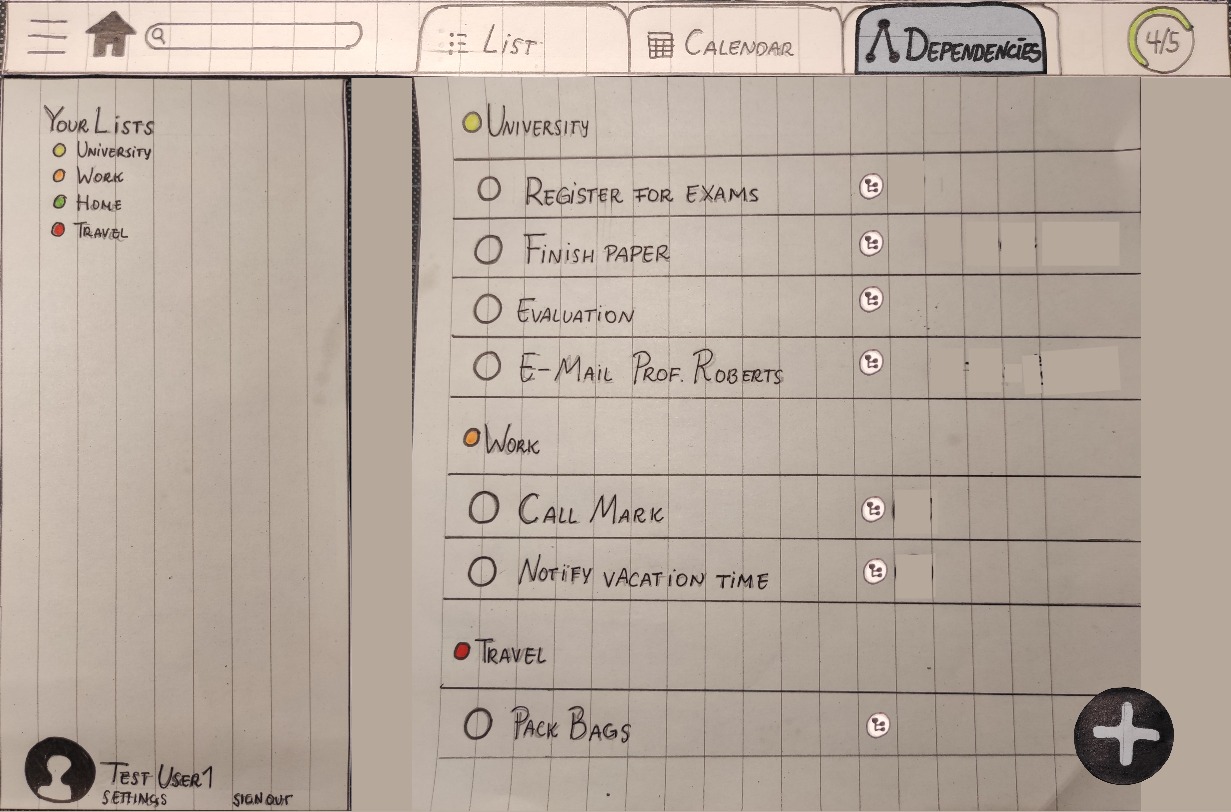 List
Calendar
Dependencies
4/5
Your Lists
University
Work
Home
Travel
Test User1
Settings
Sign out
University
Register for exams
Finish paper
Evaluation
E-Mail Prof. Roberts
Work
Call Mark
Notify vacation time
Travel
Pack Bags